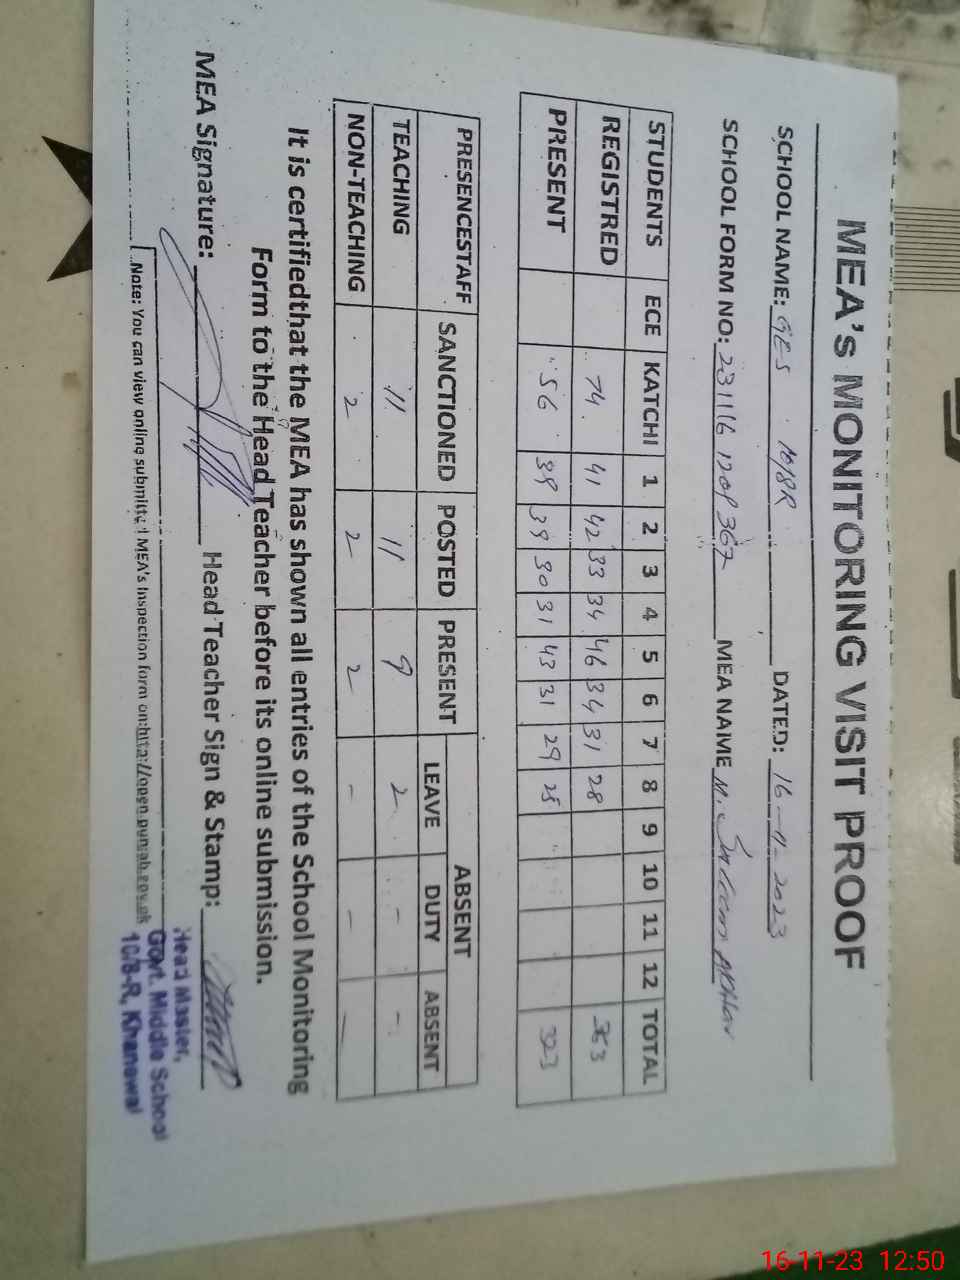 MEA's MONITORING VISIT PROOF
SCHOOL NAME: GES 10/8R DATED: 16-11-2023
SCHOOL FORM NO: 231116 1208 367 MEA NAME M. Akhtar
STUDENTS ECE KATCHI 1 2 3 4 5 6 7 8 9 10 11 12 TOTAL
REGISTRED 74 41 42 33 34 46 34 31 28 363
PRESENT 56 39 39 30 31 43 31 29 25 323
PRESENCESTAFF SANCTIONED POSTED PRESENT ABSENT
LEAVE DUTY ABSENT
TEACHING 11 11 9 2 - -
NON-TEACHING 2 2 2 - - -
It is certifiedthat the MEA has shown all entries of the School Monitoring
Form to the Head Teacher before its online submission.
MEA Signature: Head Teacher Sign & Stamp:
Head Master,
Govt. Middle School
10/8-R, Khanewal
Note: You can view online submitted MEA's Inspection form on:http://open.punjab.gov.pk
16-11-23 12:50